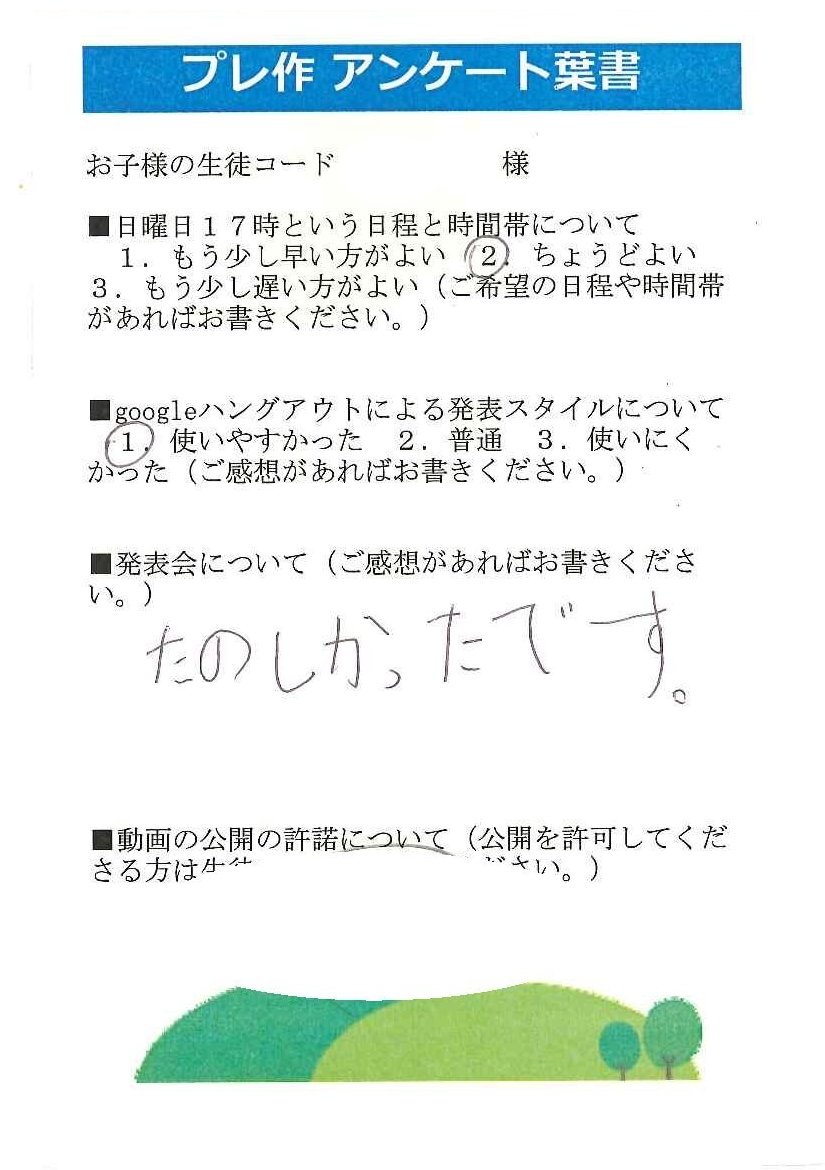 プレ作 アンケート葉書
お子様の生徒コード 様
■日曜日１７時という日程と時間帯について
１．もう少し早い方がよい ２．ちょうどよい
３．もう少し遅い方がよい（ご希望の日程や時間帯
があればお書きください。）
■googleハングアウトによる発表スタイルについて
１．使いやすかった ２．普通 ３．使いにく
かった（ご感想があればお書きください。）
■発表会について（ご感想があればお書きくださ
い。）
たのしかったです。
■動画の公開の許諾について（公開を許可してくだ
さる方は生徒 ださい。）